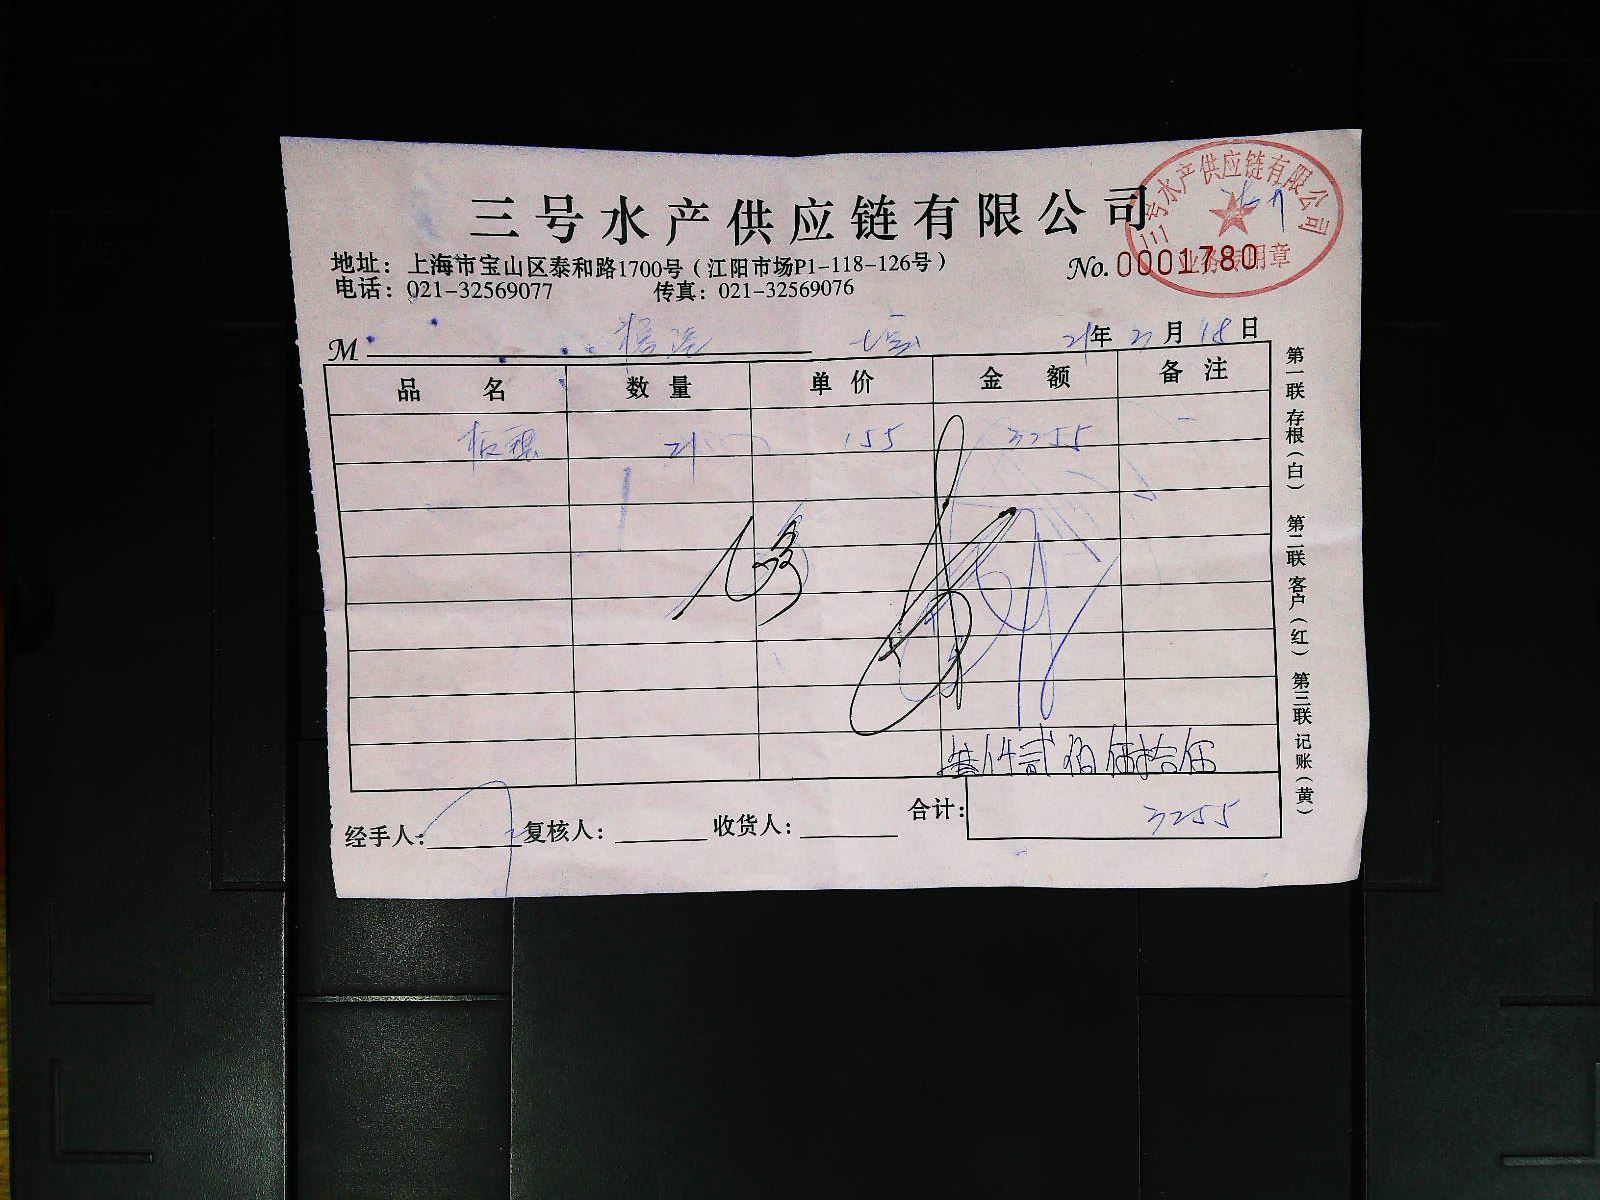 三号水产供应链有限公司
地址：上海市宝山区泰和路1700号（江阳市场P1-118-126号）
电话：021-32569077 传真：021-32569076
No. 0001780
号水产供应链有限公司
业务专用章
M 21年 月 18日
品名 数量 单价 金额 备注
21 155 3255
叁仟贰佰伍拾伍
合计： 3255
经手人： 复核人： 收货人：
第一联 存根（白） 第二联 客户（红） 第三联 记账（黄）